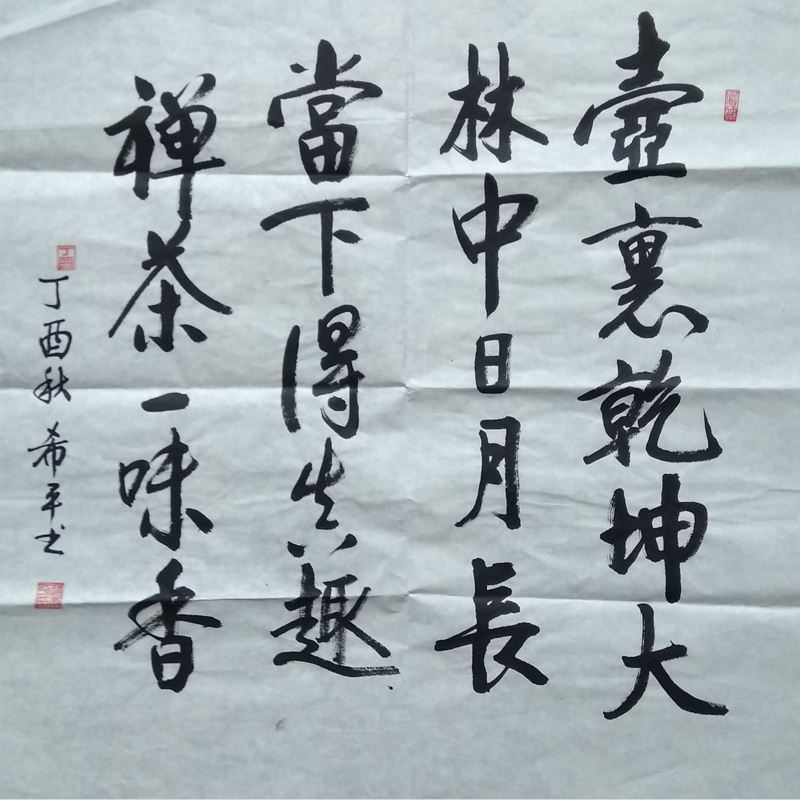 壺裏乾坤大
林中日月長
當下得真趣
禅茶一味香
丁酉秋 希平书